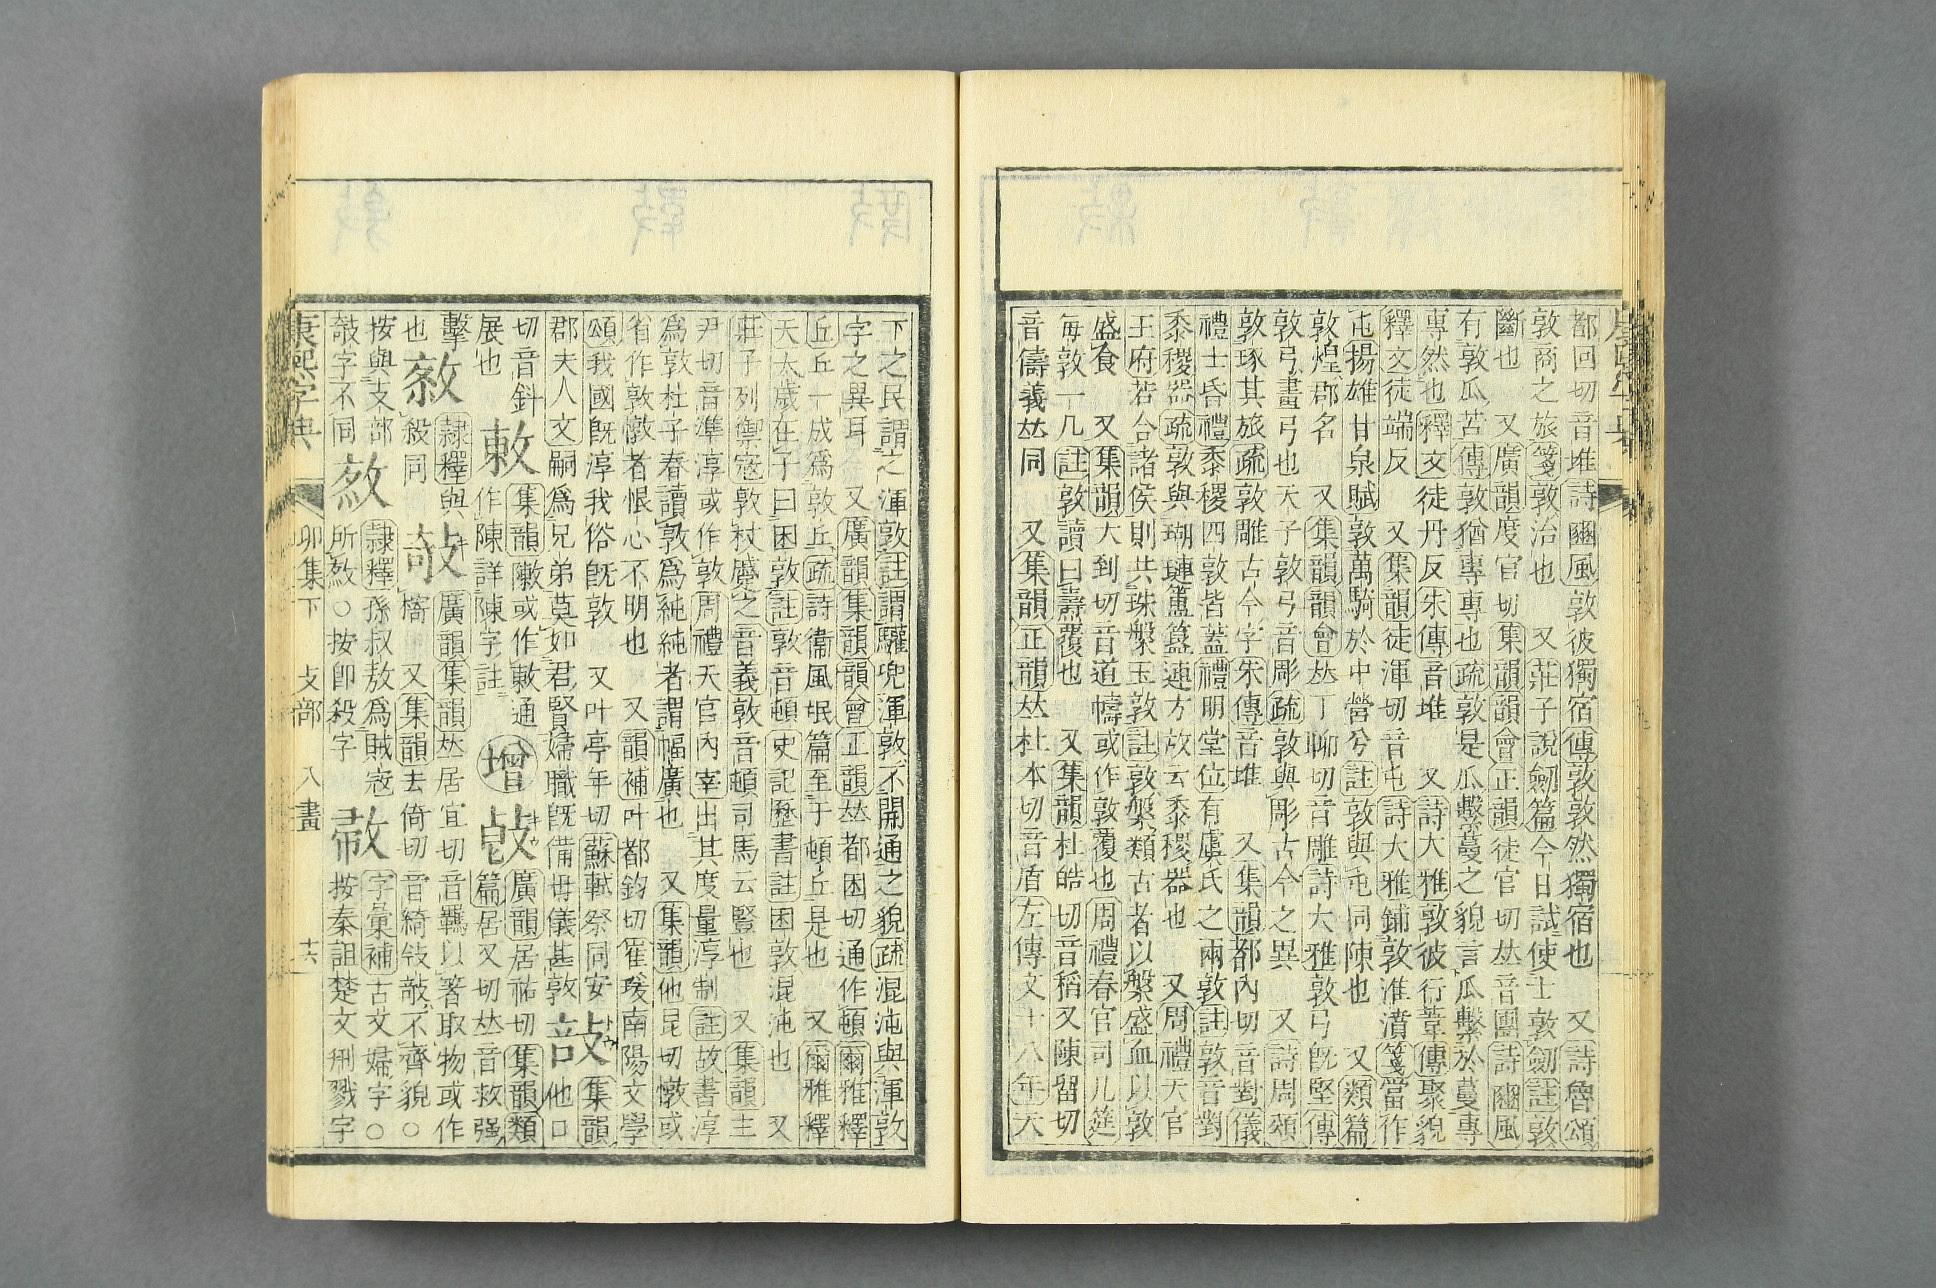 都回切音堆詩豳風敦彼獨宿傳敦敦然獨宿也　又詩魯頌
敦商之旅箋敦治也　又莊子說劒篇今日試使士敦劒註敦
斷也　又廣韻度官切集韻韻會正韻徒官切𠀤音團詩豳風
有敦瓜苦傳敦猶專專也疏敦是瓜繫蔓之貌言瓜繫於蔓專
專然也釋文徒丹反朱傳音堆　又詩大雅敦彼行葦傳聚貌
釋文徒端反　又集韻徒渾切音屯詩大雅鋪敦淮濆箋當作
屯揚雄甘泉賦敦萬騎於中營兮註敦與屯同陳也　又類篇
敦煌郡名　又集韻韻會𠀤丁聊切音雕詩大雅敦弓旣堅傳
敦弓畫弓也天子敦弓音彫疏敦與彫古今之異　又詩周頌
敦琢其旅疏敦雕古今字朱傳音堆　又集韻都內切音對儀
禮士昏禮黍稷四敦皆蓋禮明堂位有虞氏之兩敦註敦音對
黍稷器疏敦與瑚璉簠簋連方故云黍稷器也　又周禮天官
王府若合諸侯則共珠槃玉敦註敦槃類古者以槃盛血以敦
盛食　又集韻大到切音道幬或作敦覆也周禮春官司几筵
每敦一几註敦讀曰燾覆也　又集韻杜皓切音稻又陳留切
音儔義𠀤同　又集韻正韻𠀤杜本切音盾左傳文十八年天
下之民謂之渾敦註謂驩兜渾敦不開通之貌疏混沌與渾敦
字之異耳　又廣韻集韻韻會正韻𠀤都困切通作頓爾雅釋
丘丘一成爲敦丘疏詩衞風氓篇至于頓丘是也　又爾雅釋
天太歲在子曰困敦註敦音頓史記歷書註困敦混沌也　又
莊子列禦寇敦杖蹙之音義敦音頓司馬云豎也　又集韻主
尹切音準淳或作敦周禮天官內宰出其度量淳制註故書淳
爲敦杜子春讀敦爲純純者謂幅廣也　又集韻他昆切憞或
省作敦憞者恨心不明也　又韻補叶都鈞切崔瑗南陽文學
頌我國旣淳我俗旣敦　又叶亭年切蘇軾祭同安
郡夫人文嗣爲兄弟莫如君賢婦職旣備母儀甚敦　㪗集韻他口
切音鈄
展也　敶集韻敶或作敕通作陳詳陳字註　增　㪈廣韻居祐切集韻類篇居又切𠀤音救强
擊也　𢽤隸釋與殺同　敧廣韻集韻𠀤居宜切音羈以箸取物或作㩻　又集韻去倚切音綺攲敧不齊貌○
按與支部攲字不同　𢼛隸釋孫叔敖爲賊寇所𢼛○按卽殺字　字彙補古文婦字○按秦詛楚文刑戮字
康熙字典　卯集下　攴部　八畫　十六